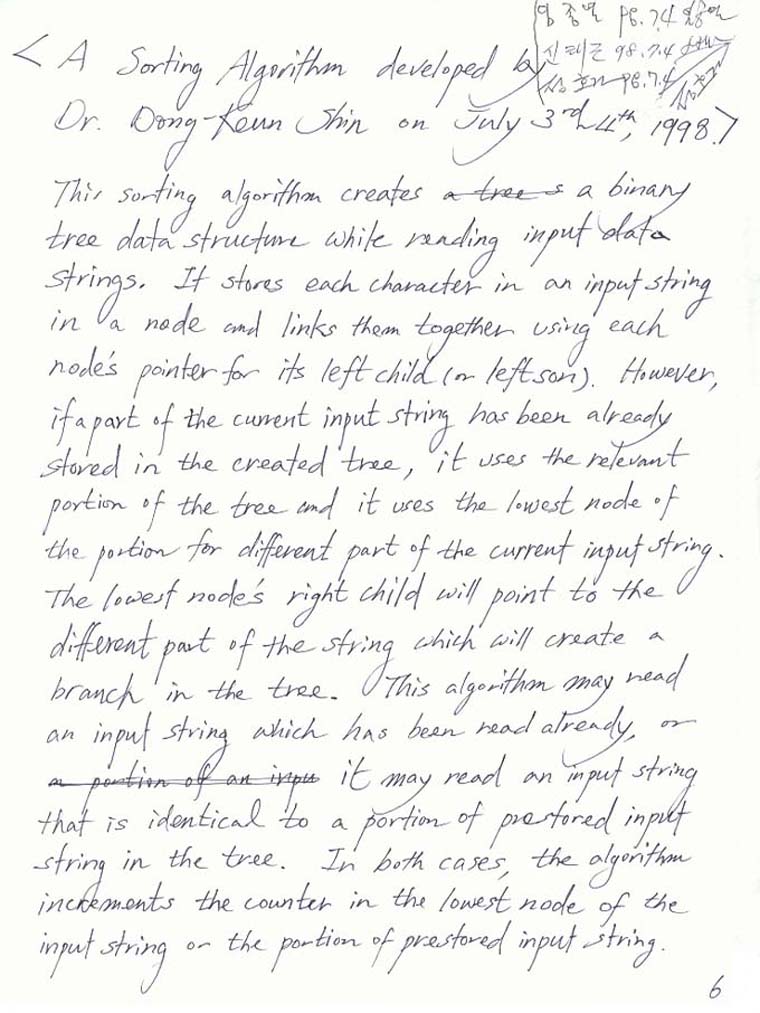 임종민 98.7.4
신태근 98.7.4
98.7.4
< A Sorting Algorithm developed by
Dr. Dong-Keun Shin on July 3rd, 4th, 1998.>
This sorting algorithm creates a tree s a binary
tree data structure while reading input data
strings. It stores each character in an input string
in a node and links them together using each
node's pointer for its left child (or left son). However,
if a part of the current input string has been already
stored in the created tree, it uses the relevant
portion of the tree and it uses the lowest node of
the portion for different part of the current input string.
The lowest node's right child will point to the
different part of the string which will create a
branch in the tree. This algorithm may read
an input string which has been read already, or
a portion of an inpu it may read an input string
that is identical to a portion of prestored input
string in the tree. In both cases, the algorithm
increments the counter in the lowest node of the
input string or the portion of prestored input string.
6